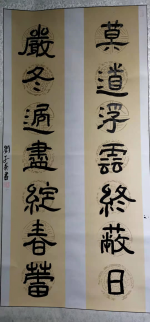 莫道浮雲終蔽日
嚴冬過盡綻春蕾